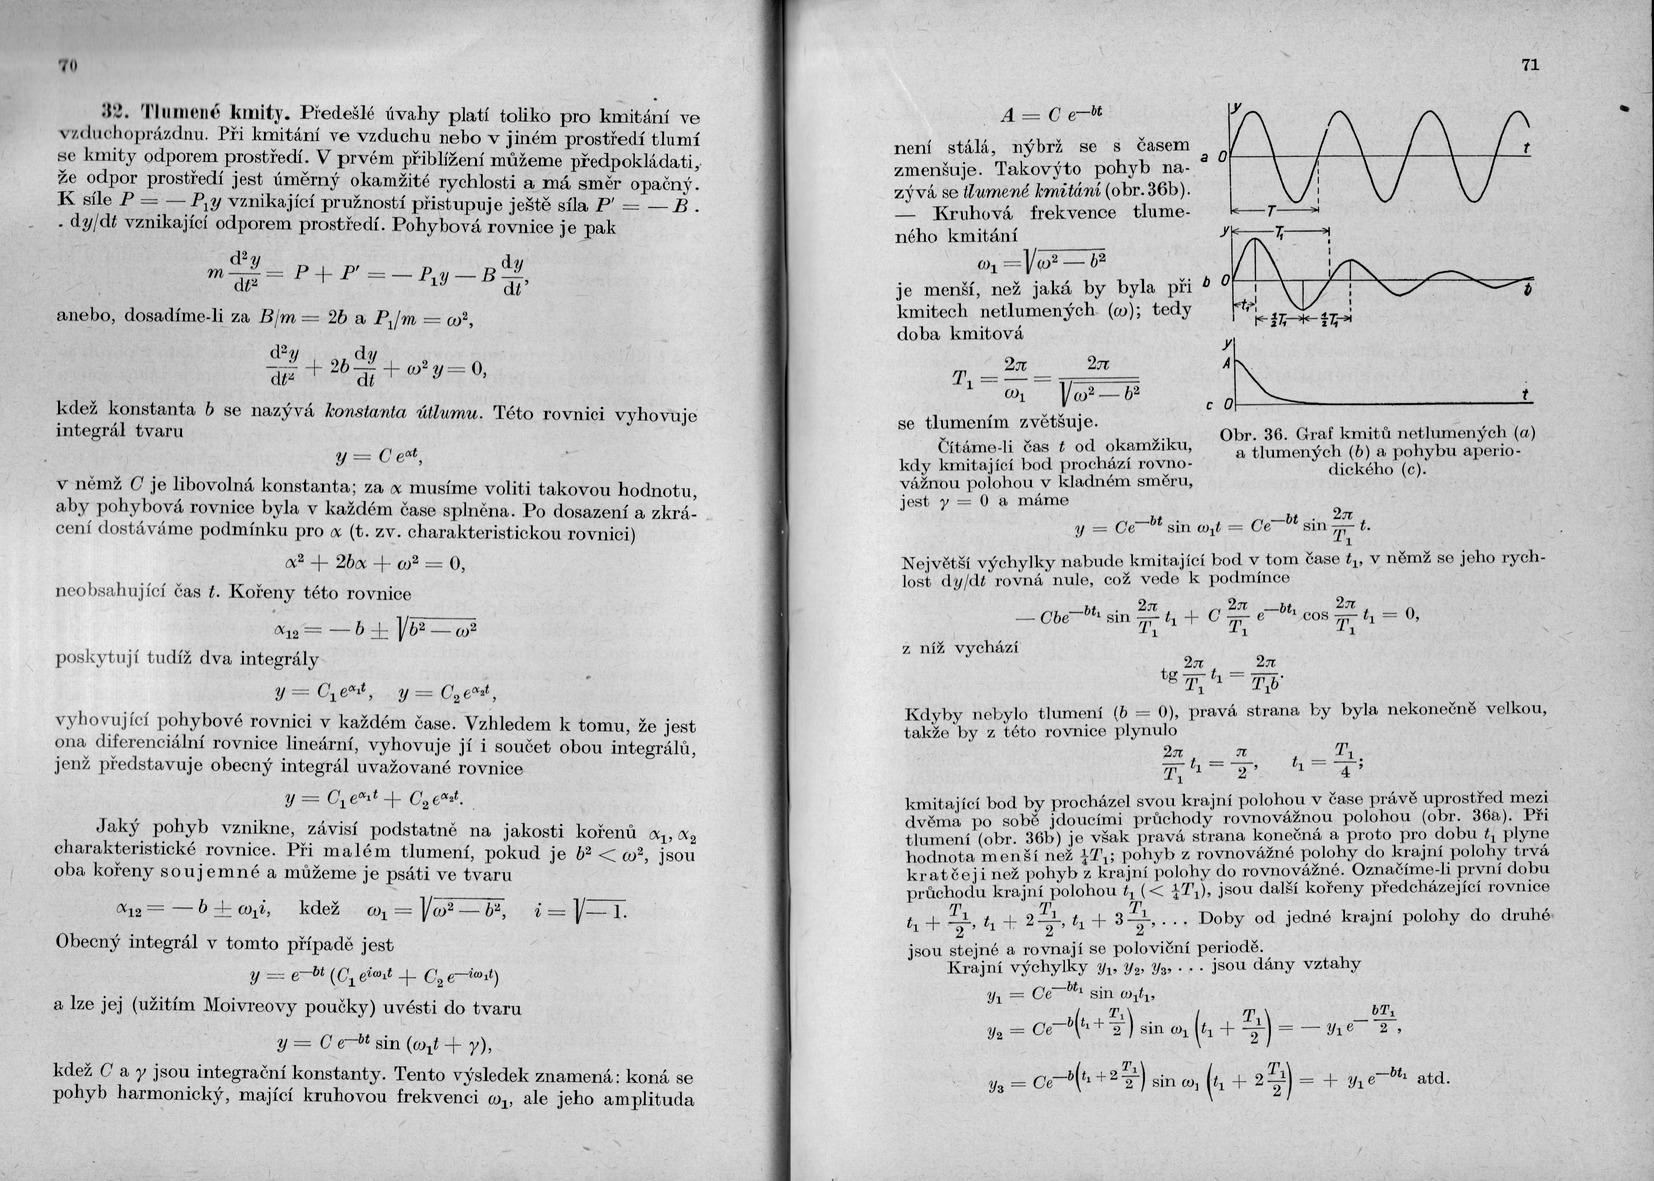 70
32. Tlumené kmity. Předešlé úvahy platí toliko pro kmitání ve
vzduchoprázdnu. Při kmitání ve vzduchu nebo v jiném prostředí tlumí
se kmity odporem prostředí. V prvém přiblížení můžeme předpokládati,
že odpor prostředí jest úměrný okamžité rychlosti a má směr opačný.
K síle P = — P₁y vznikající pružností přistupuje ještě síla P′ = — B .
. dy/dt vznikající odporem prostředí. Pohybová rovnice je pak
m d²y/dt² = P + P′ = — P₁y — B dy/dt,
anebo, dosadíme-li za B/m = 2b a P₁/m = ω²,
d²y/dt² + 2b dy/dt + ω² y = 0,
kdež konstanta b se nazývá konstanta útlumu. Této rovnici vyhovuje
integrál tvaru
y = C e^{αt},
v němž C je libovolná konstanta; za α musíme voliti takovou hodnotu,
aby pohybová rovnice byla v každém čase splněna. Po dosazení a zkrá-
cení dostáváme podmínku pro α (t. zv. charakteristickou rovnici)
α² + 2bα + ω² = 0,
neobsahující čas t. Kořeny této rovnice
α₁₂ = — b ± √(b² — ω²)
poskytují tudíž dva integrály
y = C₁ e^{α₁t}, y = C₂ e^{α₂t},
vyhovující pohybové rovnici v každém čase. Vzhledem k tomu, že jest
ona diferenciální rovnice lineární, vyhovuje jí i součet obou integrálů,
jenž představuje obecný integrál uvažované rovnice
y = C₁ e^{α₁t} + C₂ e^{α₂t}.
Jaký pohyb vznikne, závisí podstatně na jakosti kořenů α₁, α₂
charakteristické rovnice. Při malém tlumení, pokud je b² < ω², jsou
oba kořeny soujemné a můžeme je psáti ve tvaru
α₁₂ = — b ± ω₁i, kdež ω₁ = √(ω² — b²), i = √(— 1).
Obecný integrál v tomto případě jest
y = e^{—bt} (C₁ e^{iω₁t} + C₂ e^{—iω₁t})
a lze jej (užitím Moivreovy poučky) uvésti do tvaru
y = C e^{—bt} sin (ω₁t + γ),
kdež C a γ jsou integrační konstanty. Tento výsledek znamená: koná se
pohyb harmonický, mající kruhovou frekvenci ω₁, ale jeho amplituda
71
A = C e^{—bt}
není stálá, nýbrž se s časem
zmenšuje. Takovýto pohyb na-
zývá se tlumené kmitání (obr. 36b).
— Kruhová frekvence tlume-
ného kmitání
ω₁ = √(ω² — b²)
je menší, než jaká by byla při
kmitech netlumených (ω); tedy
doba kmitová
T₁ = 2π/ω₁ = 2π/√(ω² — b²)
se tlumením zvětšuje.
Čítáme-li čas t od okamžiku,
kdy kmitající bod prochází rovno-
vážnou polohou v kladném směru,
jest γ = 0 a máme
y
a 0
t
T
y
T₁
b 0
t
t₁
½T₁
½T₁
y
A
c 0
t
Obr. 36. Graf kmitů netlumených (a)
a tlumených (b) a pohybu aperio-
dického (c).
y = Ce^{—bt} sin ω₁t = Ce^{—bt} sin 2π/T₁ t.
Největší výchylky nabude kmitající bod v tom čase t₁, v němž se jeho rych-
lost dy/dt rovná nule, což vede k podmínce
— Cbe^{—bt₁} sin 2π/T₁ t₁ + C 2π/T₁ e^{—bt₁} cos 2π/T₁ t₁ = 0,
z níž vychází
tg 2π/T₁ t₁ = 2π/T₁b.
Kdyby nebylo tlumení (b = 0), pravá strana by byla nekonečně velkou,
takže by z této rovnice plynulo
2π/T₁ t₁ = π/2, t₁ = T₁/4;
kmitající bod by procházel svou krajní polohou v čase právě uprostřed mezi
dvěma po sobě jdoucími průchody rovnovážnou polohou (obr. 36a). Při
tlumení (obr. 36b) je však pravá strana konečná a proto pro dobu t₁ plyne
hodnota menší než ¼T₁; pohyb z rovnovážné polohy do krajní polohy trvá
kratčeji než pohyb z krajní polohy do rovnovážné. Označíme-li první dobu
průchodu krajní polohou t₁ (< ¼T₁), jsou další kořeny předcházející rovnice
t₁ + T₁/2, t₁ + 2 T₁/2, t₁ + 3 T₁/2, . . . Doby od jedné krajní polohy do druhé
jsou stejné a rovnají se poloviční periodě.
Krajní výchylky y₁, y₂, y₃, . . . jsou dány vztahy
y₁ = Ce^{—bt₁} sin ω₁t₁,
y₂ = Ce^{—b(t₁ + T₁/2)} sin ω₁ (t₁ + T₁/2) = — y₁ e^{— bT₁/2},
y₃ = Ce^{—b(t₁ + 2 T₁/2)} sin ω₁ (t₁ + 2 T₁/2) = + y₁ e^{—bt₁} atd.